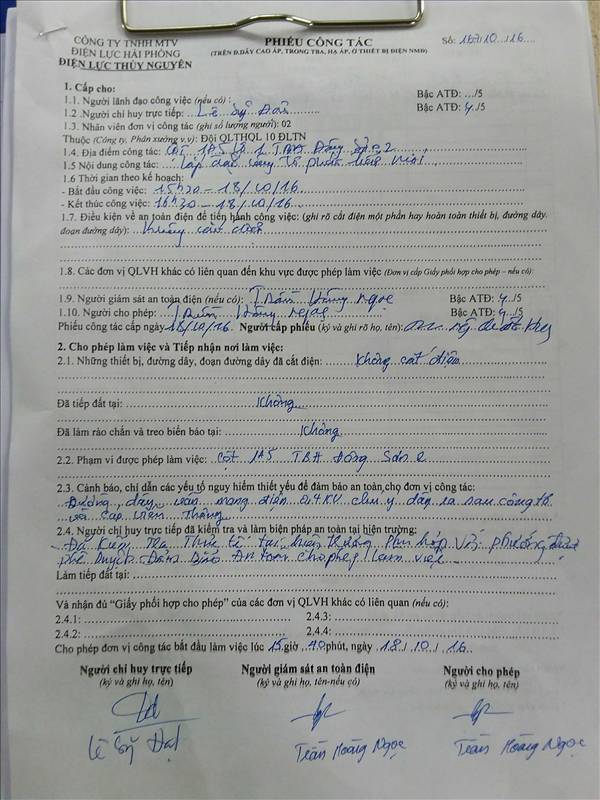 CÔNG TY TNHH MTV
ĐIỆN LỰC HẢI PHÒNG
ĐIỆN LỰC THỦY NGUYÊN
PHIẾU CÔNG TÁC
(TRÊN Đ.DÂY CAO ÁP, TRONG TBA, HẠ ÁP, Ở THIẾT BỊ ĐIỆN NMĐ)
Số: 10...16
1. Cấp cho:
1.1. Người lãnh đạo công việc (nếu có): Bậc ATĐ: .../5
1.2. Người chỉ huy trực tiếp: Lê Sỹ Đạt Bậc ATĐ: 4/5
1.3. Nhân viên đơn vị công tác (ghi số lượng người): 02
Thuộc (Công ty, Phân xưởng v.v): Đội QLTHQL 10 ĐLTN
1.4. Địa điểm công tác: Cột 1A5 TBA Đông Sơn 2
1.5 Nội dung công tác: Lắp đặt công tơ
1.6 Thời gian theo kế hoạch:
- Bắt đầu công việc: 15h20 - 18/10/16
- Kết thúc công việc: 16h30 - 18/10/16
1.7. Điều kiện về an toàn điện để tiến hành công việc: (ghi rõ cắt điện một phần hay hoàn toàn thiết bị, đường dây,
đoạn đường dây): Không cắt điện
1.8. Các đơn vị QLVH khác có liên quan đến khu vực được phép làm việc (Đơn vị cấp Giấy phối hợp cho phép – nếu có):
1.9. Người giám sát an toàn điện (nếu có): Trần Hoàng Ngọc Bậc ATĐ: 4/5
1.10. Người cho phép: Trần Hoàng Ngọc Bậc ATĐ: 4/5
Phiếu công tác cấp ngày 18/10/16. Người cấp phiếu (ký và ghi rõ họ, tên):
2. Cho phép làm việc và Tiếp nhận nơi làm việc:
2.1. Những thiết bị, đường dây, đoạn đường dây đã cắt điện: Không cắt điện
Đã tiếp đất tại: Không
Đã làm rào chắn và treo biển báo tại: Không
2.2. Phạm vi được phép làm việc: Cột 1A5 TBA Đông Sơn 2
2.3. Cảnh báo, chỉ dẫn các yếu tố nguy hiểm thiết yếu để đảm bảo an toàn cho đơn vị công tác:
Đường dây vẫn mang điện 0,4KV chú ý dây ra sau công tơ
và cáp viễn thông
2.4. Người chỉ huy trực tiếp đã kiểm tra và làm biện pháp an toàn tại hiện trường:
Đã kiểm tra thực tế tại hiện trường phù hợp với phương án
phê duyệt Đảm bảo an toàn cho phép làm việc
Làm tiếp đất tại:
Và nhận đủ “Giấy phối hợp cho phép” của các đơn vị QLVH khác có liên quan (nếu có):
2.4.1: 2.4.3:
2.4.2: 2.4.4:
Cho phép đơn vị công tác bắt đầu làm việc lúc 15 giờ 40 phút, ngày 18/10/16
Người chỉ huy trực tiếp Người giám sát an toàn điện Người cho phép
(ký và ghi họ, tên) (ký và ghi họ, tên-nếu có) (ký và ghi họ, tên)
Lê Sỹ Đạt Trần Hoàng Ngọc Trần Hoàng Ngọc